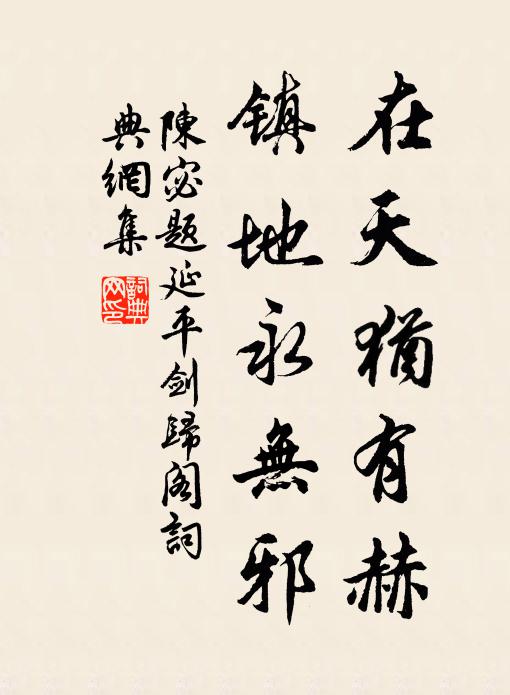 在天猶有赫
鎮地永無邪
陳宓題延平劍歸阁詞
典網集
詞典
网印